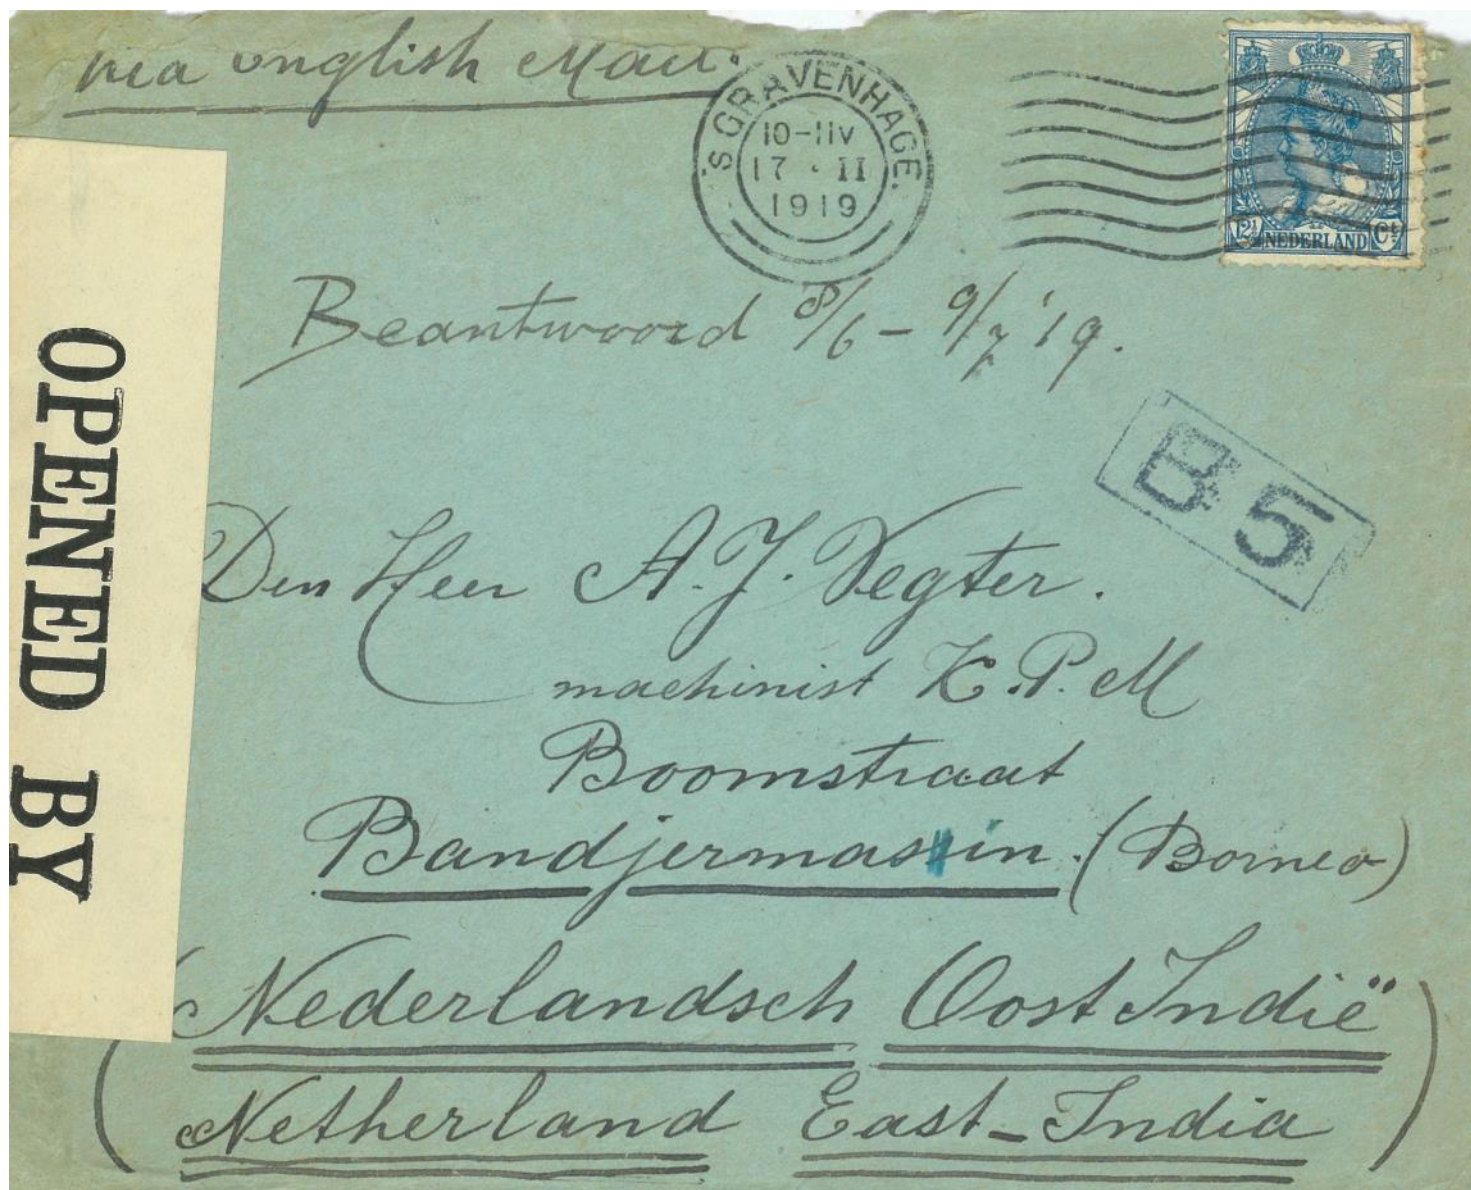 via english Mail.
'S GRAVENHAGE.
10-11V
17 · II
1919
12½ NEDERLAND Ct
Beantwoord 8/6 - 9/7 '19.
B5
OPENED BY
Den Heer A.J. Vegter.
machinist K.P.M
Boomstraat
Bandjermasin. (Borneo)
(Nederlandsch Oost Indië
(Netherland East-India)